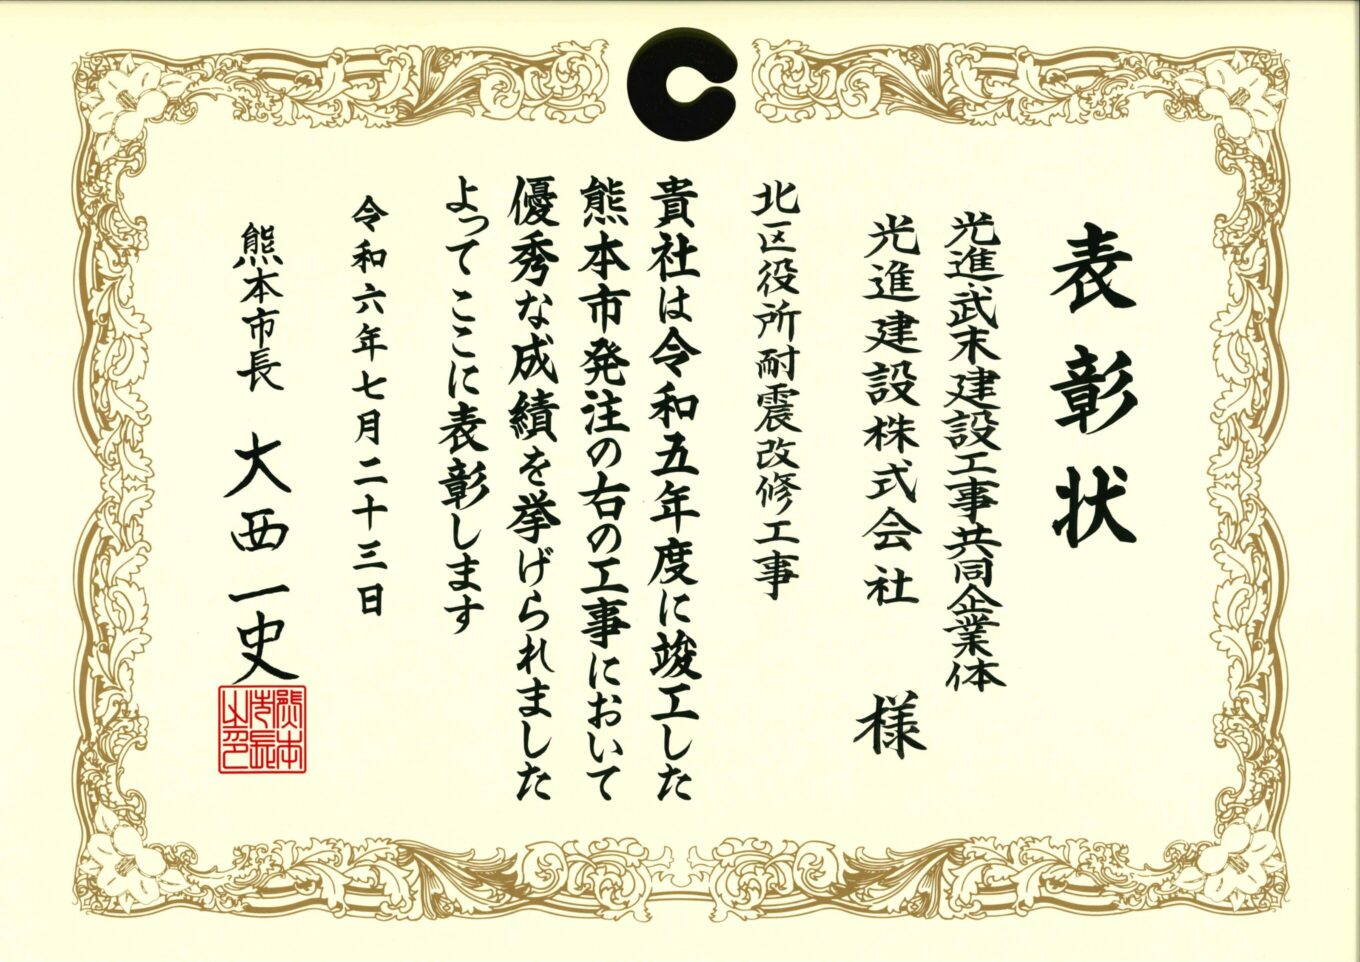 表彰状
光進・武末建設工事共同企業体
光進建設株式会社 様
北区役所耐震改修工事
貴社は令和五年度に竣工した
熊本市発注の右の工事において
優秀な成績を挙げられました
よってここに表彰します
令和六年七月二十三日
熊本市長 大西一史
熊本
市長
之印